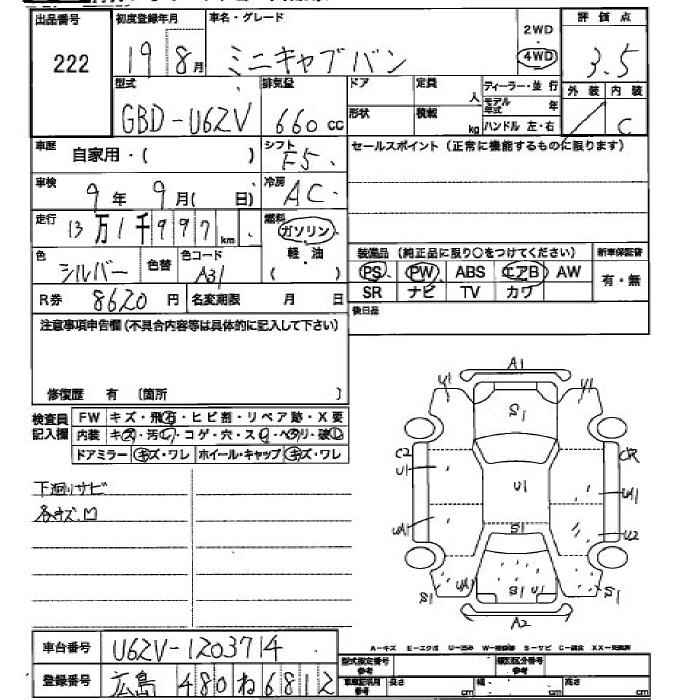 出品番号 222
初度登録年月 19 8月
車名・グレード ミニキャブバン
2WD 4WD
評価点 3.5
外装 内装 C
型式 GBD-U62V
排気量 660cc
ドア 形状
定員 人
積載 kg
ディーラー・並行
モデル年式 年
ハンドル 左・右
車歴 自家用・( )
シフト F5
セールスポイント(正常に機能するものに限ります)
車検 9年9月( 日)
冷房 AC
走行 13万1千997km
燃料 ガソリン 軽・油 ( )
色 シルバー 色替
色コード A31
装備品(純正品に限り○をつけてください)
PS PW ABS エアB AW
SR ナビ TV カワ
新車保証書 有・無
R券 8620円
名変期限 月 日
後日品
注意事項申告欄(不具合内容等は具体的に記入して下さい)
修復歴 有 〔箇所 〕
検査員記入欄
FW キズ・飛石・ヒビ割・リペア跡・X要
内装 キズ・汚レ・コゲ・穴・スレ・ヘタリ・破レ
ドアミラー キズ・ワレ ホイール・キャップ キズ・ワレ
下廻りサビ
各キズ.凹
A1
U1 S1 U1
C2 U1 U1 CR UA1
UA1 S1 U2
S1 UA1 S1 U1 S1
A2
A-キズ E-エクボ U-凹み S-サビ
車台番号 U62V-1203714
型式指定番号 参考
類別区分番号 参考
登録番号 広島 480 ね 6812
車庫証明用 参考 長さ cm 幅 cm 高さ cm